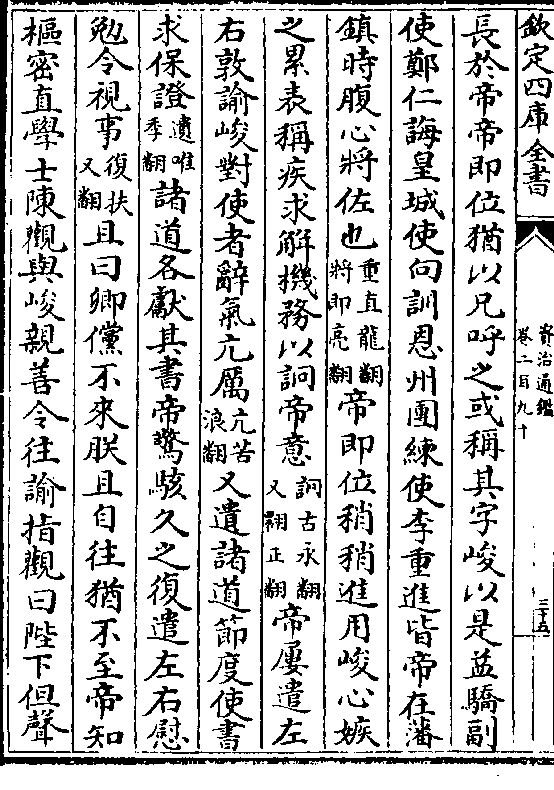 欽定四庫全書
資治通鑑
卷二百九十
三十五
長於帝帝即位猶以兄呼之或稱其字峻以是益驕副
使鄭仁誨皇城使向訓恩州團練使李重進皆帝在藩
鎮時腹心將佐也重直龍翻將即亮翻帝即位稍稍進用峻心嫉
之累表稱疾求解機務以詗帝意詗古永翻又翾正翻帝屢遣左
右敦諭峻對使者辭氣亢厲亢苦浪翻又遺諸道節度使書
求保證遺唯季翻諸道各獻其書帝驚駭久之復遣左右慰
勉令視事復扶又翻且曰卿儻不來朕且自往猶不至帝知
樞密直學士陳觀與峻親善令往諭指觀曰陛下但聲